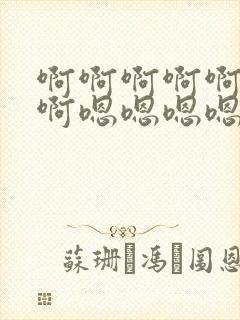 啊啊啊啊啊
啊嗯嗯嗯嗯
蘇珊·馮·閨恩